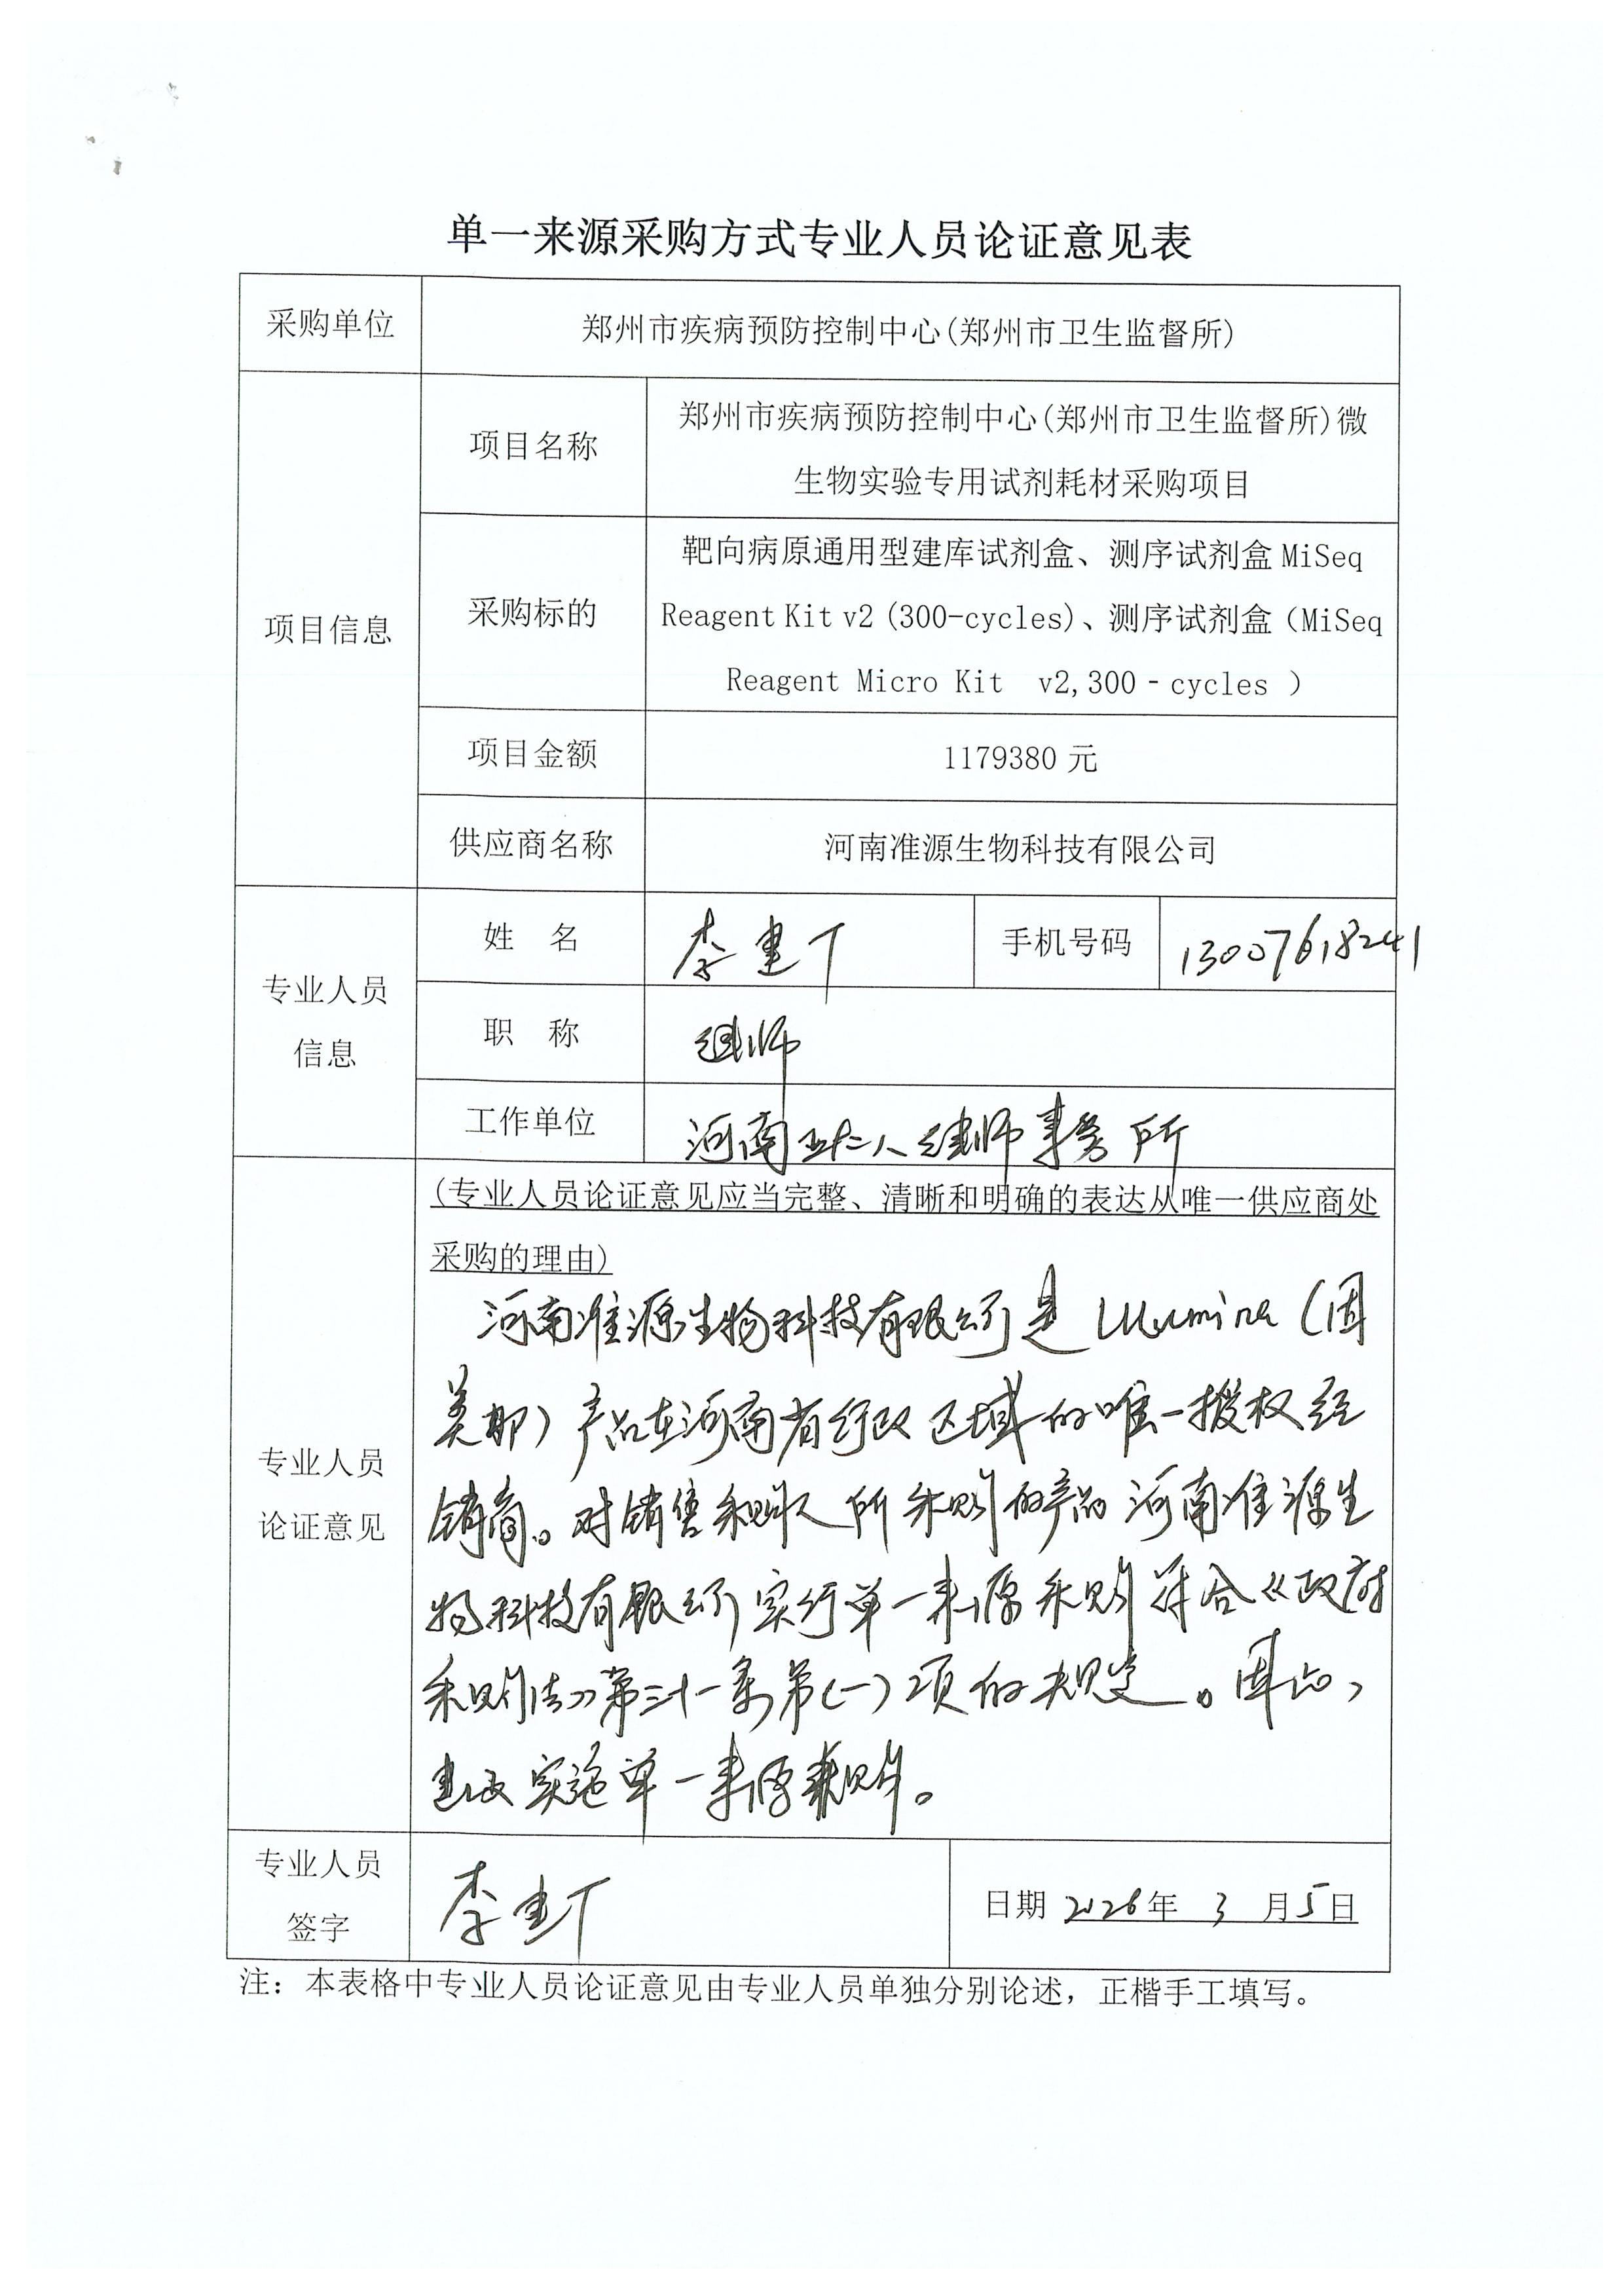 单一来源采购方式专业人员论证意见表
采购单位
郑州市疾病预防控制中心(郑州市卫生监督所)
项目信息
项目名称
郑州市疾病预防控制中心(郑州市卫生监督所)微
生物实验专用试剂耗材采购项目
采购标的
靶向病原通用型建库试剂盒、测序试剂盒 MiSeq
Reagent Kit v2 (300-cycles)、测序试剂盒（MiSeq
Reagent Micro Kit v2,300‐cycles ）
项目金额
1179380 元
供应商名称
河南准源生物科技有限公司
专业人员
信息
姓 名
李建丁
手机号码
13007618241
职 称
律师
工作单位
河南 人律师事务所
专业人员
论证意见
(专业人员论证意见应当完整、清晰和明确的表达从唯一供应商处
采购的理由)
河南准源生物科技有限公司是 illumina（因
美那）产品在河南省行政区域的唯一授权经
销商。对销售采购人所采购的产品河南准源生
物科技有限公司实行单一来源采购符合《政府
采购法》第三十一条第(一)项的规定。因此，
建议实施单一来源采购。
专业人员
签字
李建丁
日期 2026年 3 月5日
注：本表格中专业人员论证意见由专业人员单独分别论述，正楷手工填写。